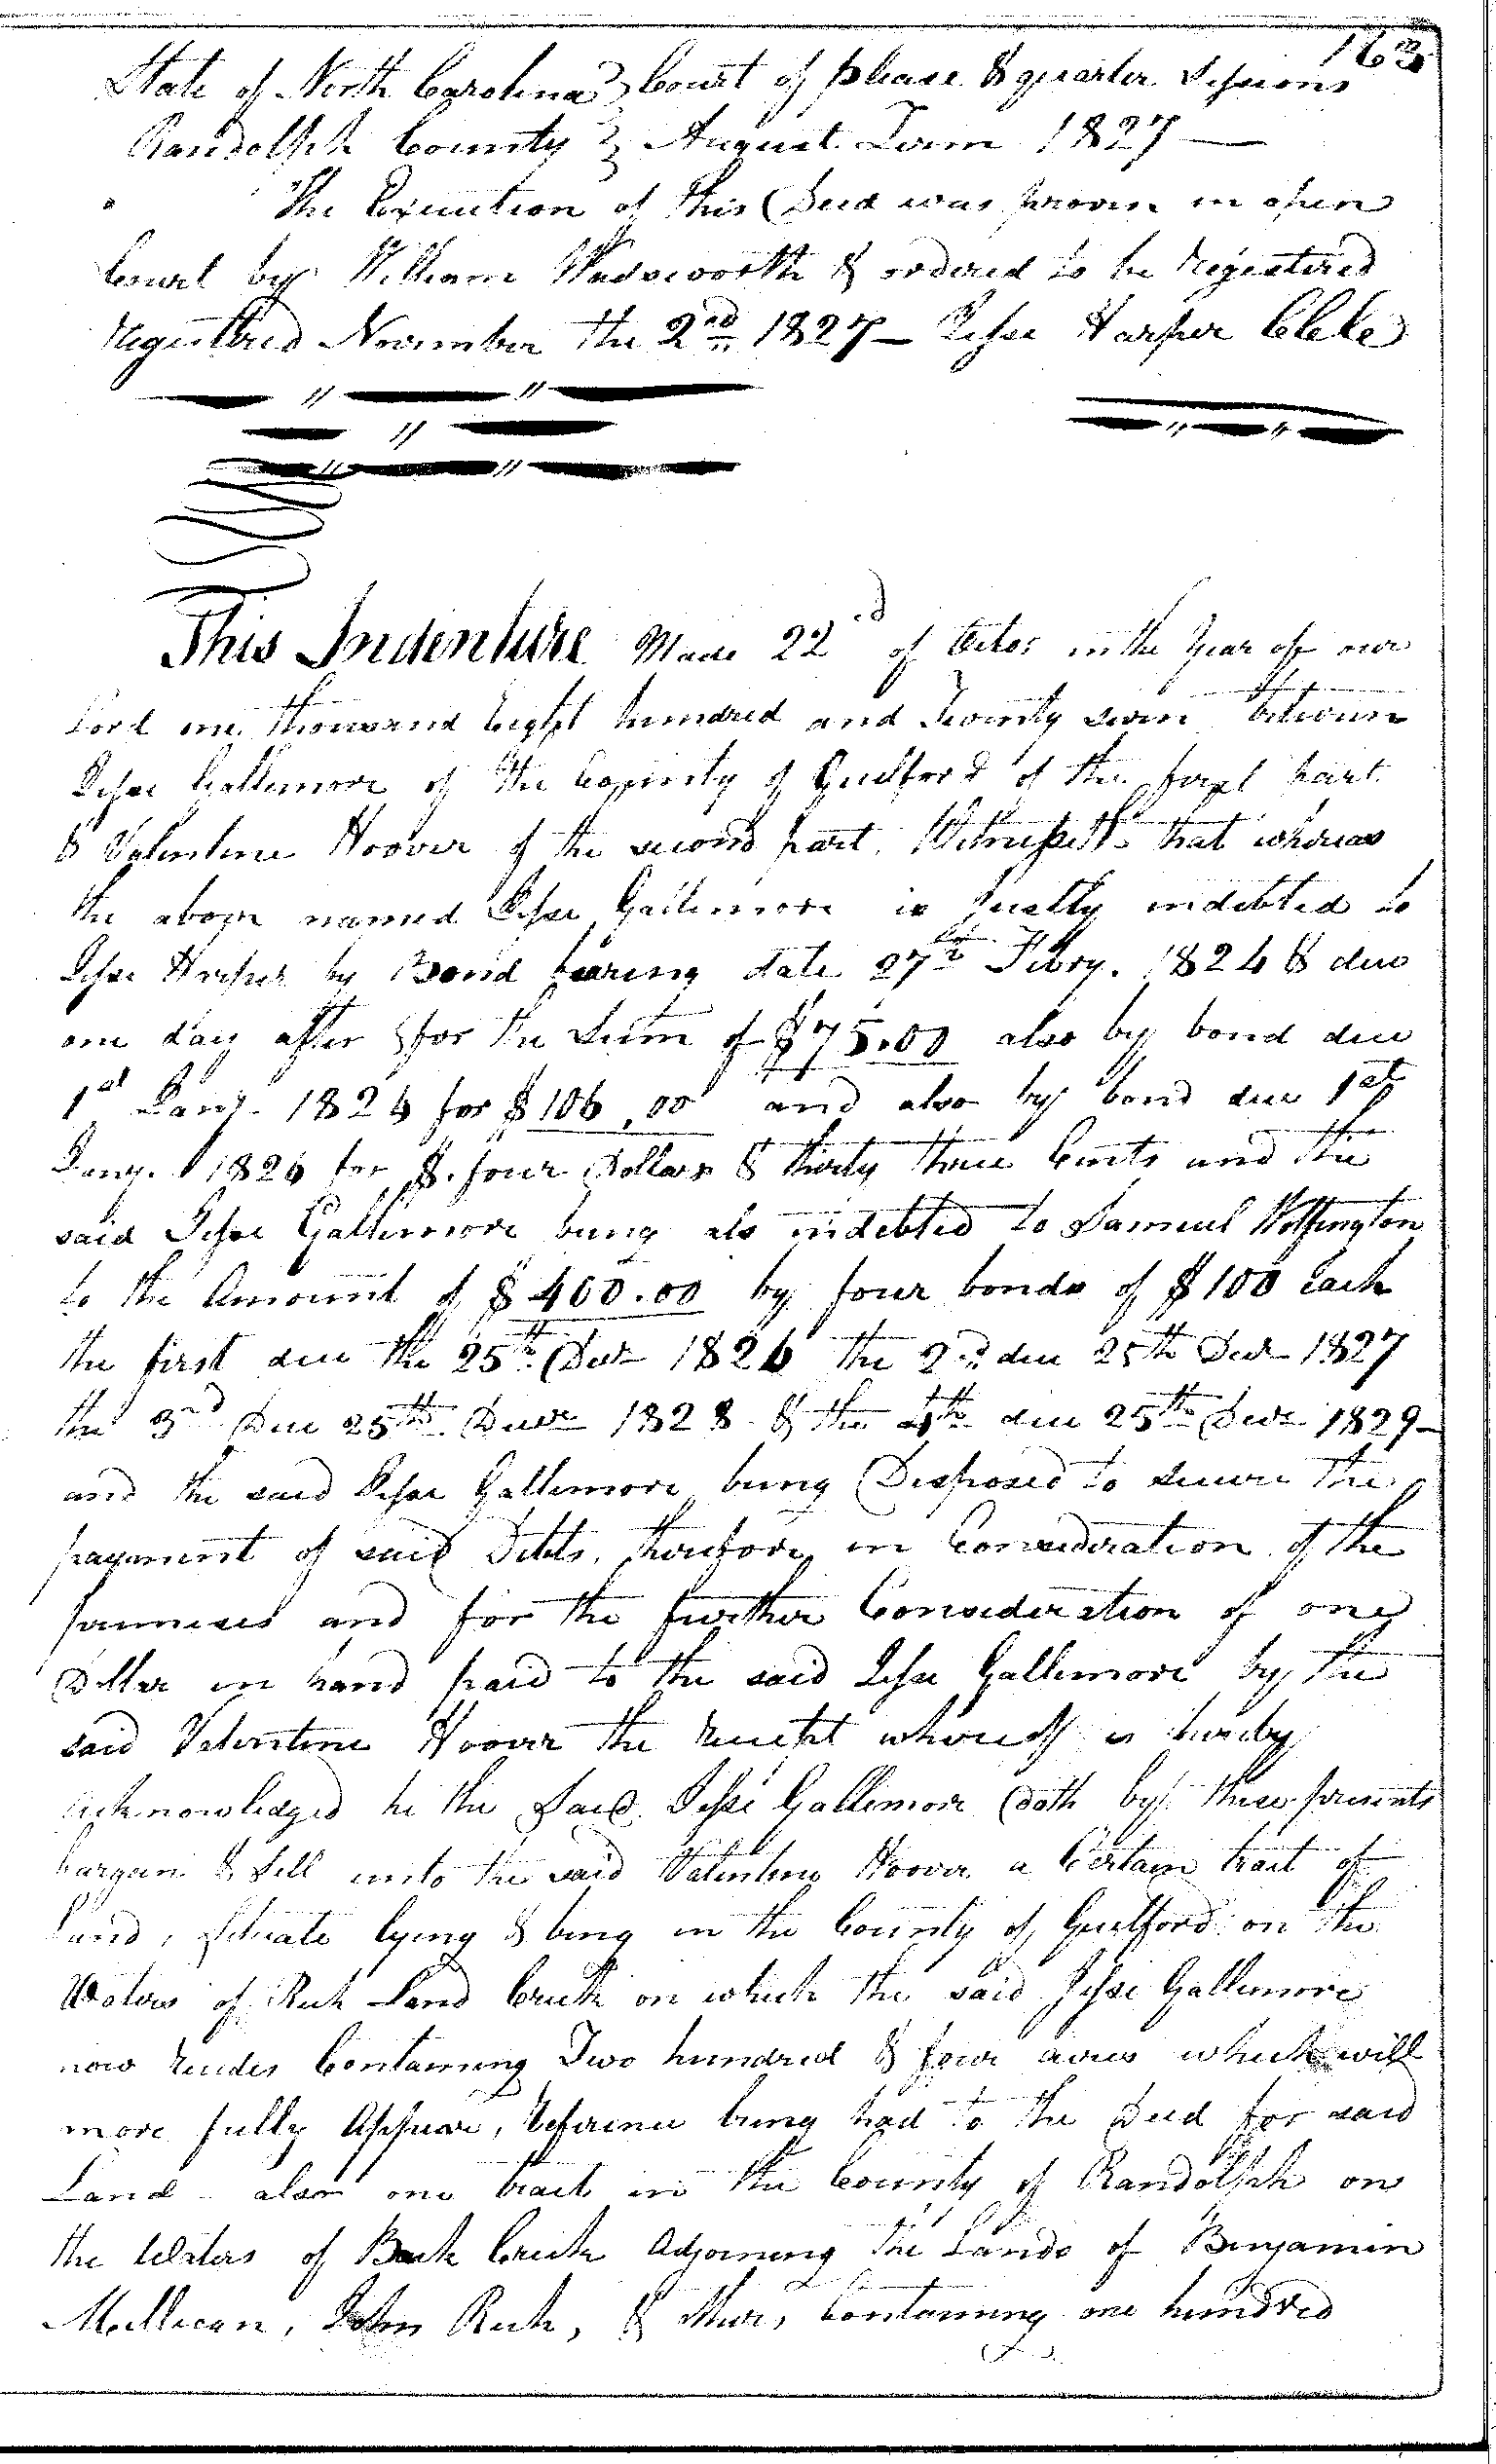 163
State of North Carolina } Court of please & quarter Sessions
Randolph County } August Term 1827 —
The Execution of this Deed was proven in open
Court by William Wadsworth & ordered to be Registered
Registered November the 2nd 1827 — Jesse Harper Clk
This Indenture Made 22d of Octor in the Year of our
Lord one thousand Eight hundred and Twenty seven between
Jesse Gallemore of the County of Guilford of the first part
& Valentine Hoover of the second part. Witnesseth that whereas
the above named Jesse Gallemore is justly indebted to
Jesse Harper by Bond bearing date 27th Febry. 1824 & due
one day after for the Sum of $75.00 also by bond due
1st Jany. 1824 for $106,00 and also by bond due 1st
Jany. 1826 for $. four Dollars & thirty three Cents and the
said Jesse Gallemore being als indebted to Samuel
to the Amount of $400.00 by four bonds of $100 Each
the first due the 25th Decr 1826 the 2nd due 25th Decr 1827
the 3rd Due 25th Decr 1828 & the 4th due 25th Decr 1829 —
and the said Jesse Gallemore being Disposed to secure the
payment of said Debts, therefore in Consideration of the
premises and for the further Consideration of one
Dollar in hand paid to the said Jesse Gallemore by the
said Valentine Hoover the receipt whereof is hereby
acknowledged he the Said Jesse Gallemore doth by these presents
bargain & Sell unto the said Valentine Hoover a Certain tract of
Land, Situate lying & being in the County of Guilford on the
Waters of Rich Land Creek on which the said Jesse Gallemore
now resides Containing Two hundred & four acres which will
more fully Appear, reference being had to the Deed for said
Land - also one tract in the County of Randolph on
the Waters of Back Creek Adjoining the Lands of Benjamin
Mullican, John Rich, & Containing one hundred